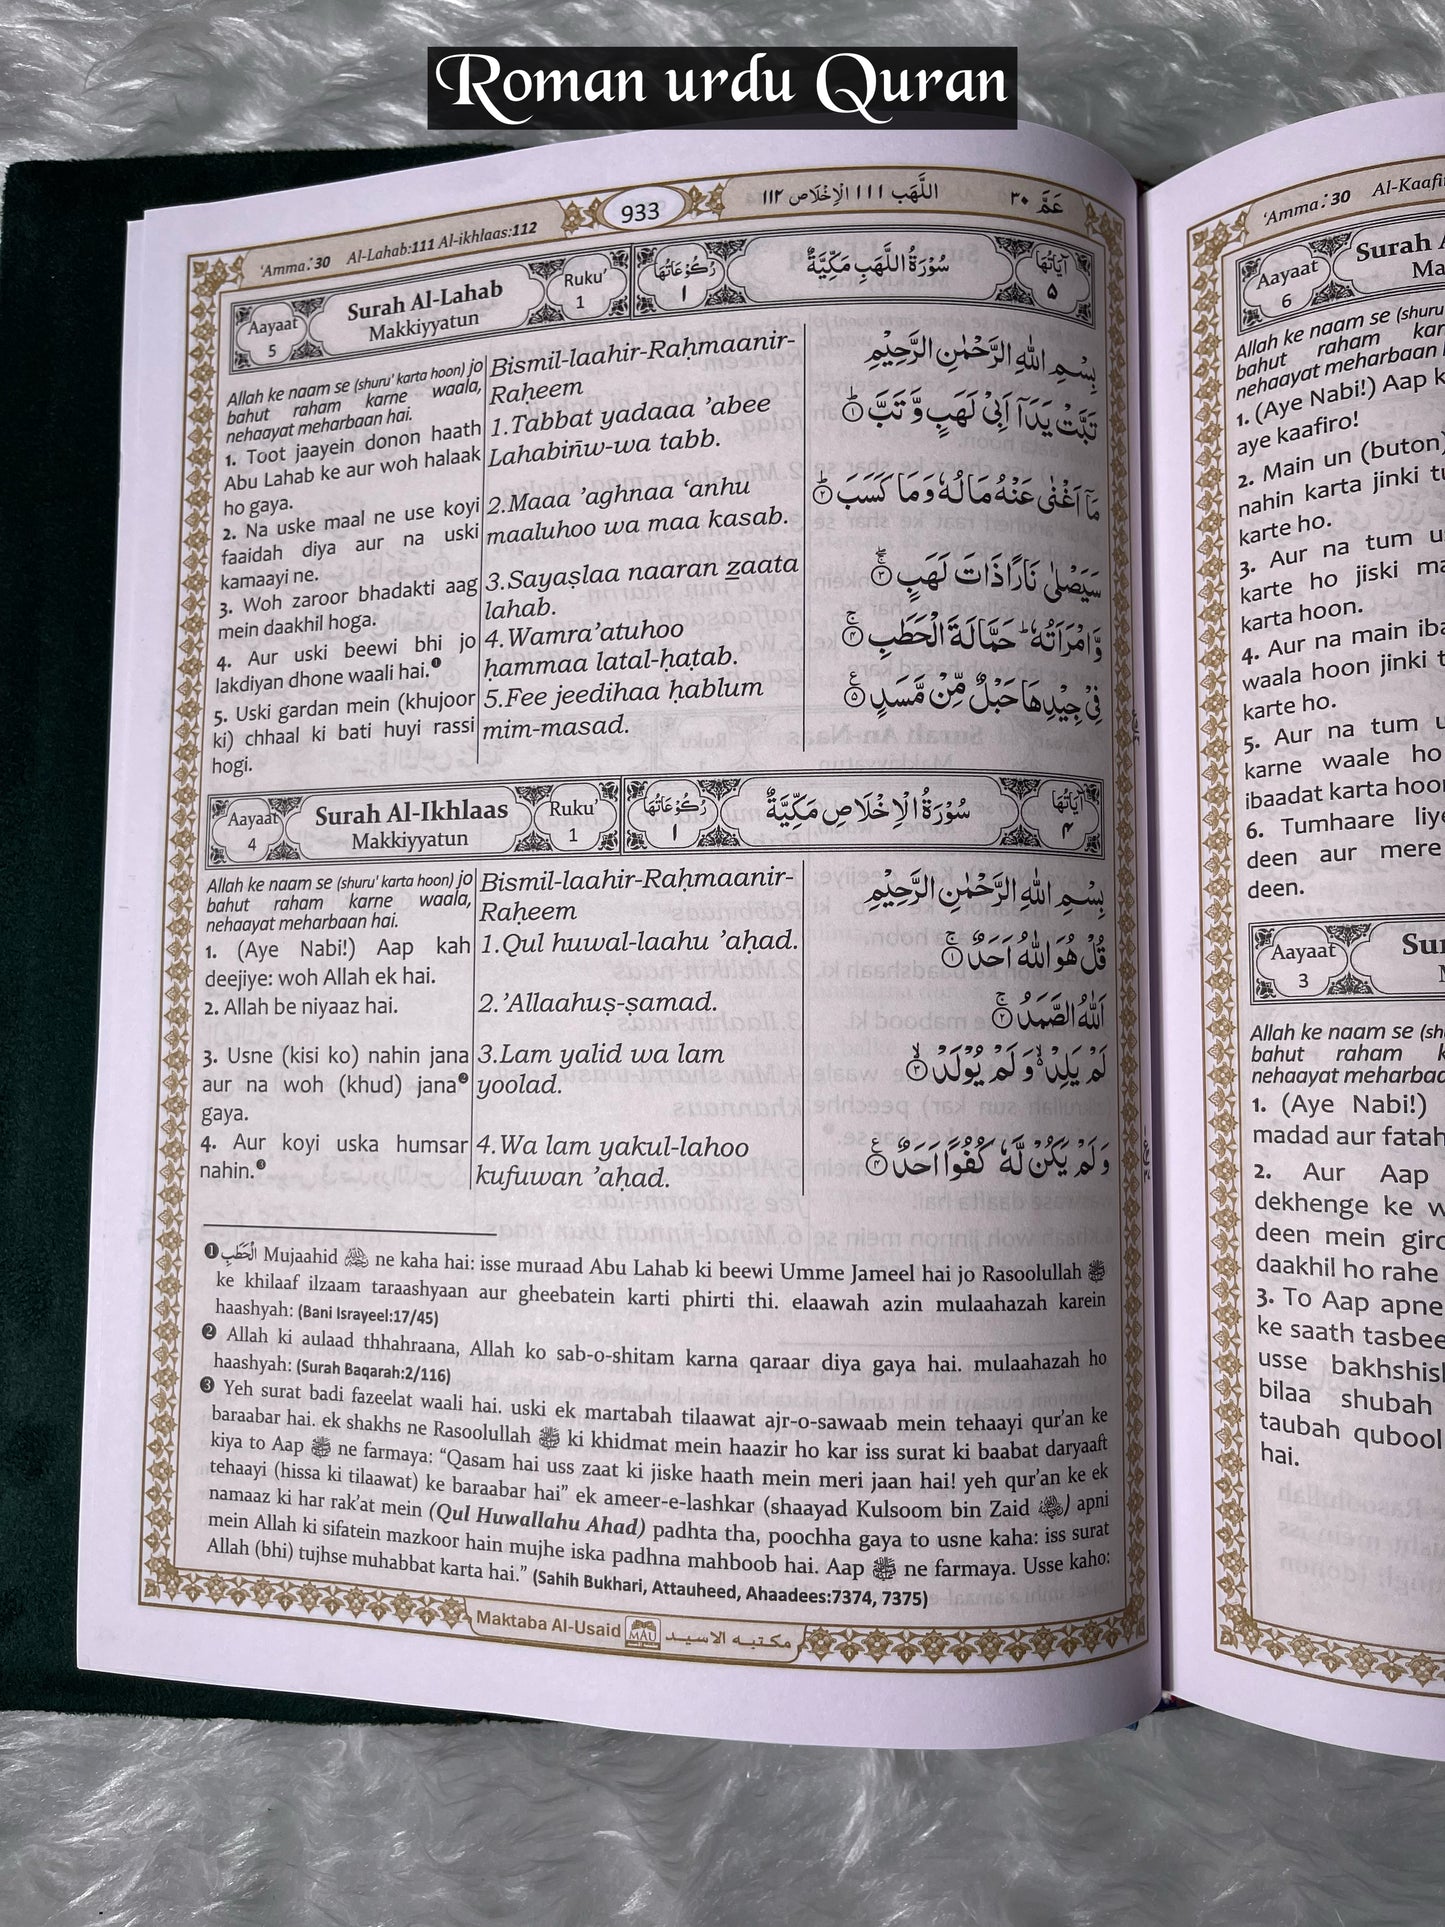 Roman urdu Quran
‘Amma:30 Al-Lahab:111 Al-ikhlaas:112
933
اللَّهَب ١١١ الْاِخْلَاص ١١٢
عَمَّ ٣٠
Aayaat
5
Surah Al-Lahab
Makkiyyatun
Ruku’
1
رُكُوْعَاتُهَا
١
سُوْرَةُ اللَّهَبِ مَكِّيَّةٌ
اٰيَاتُهَا
٥
Allah ke naam se (shuru' karta hoon) jo
bahut raham karne waala,
nehaayat meharbaan hai.
1. Toot jaayein donon haath
Abu Lahab ke aur woh halaak
ho gaya.
2. Na uske maal ne use koyi
faaidah diya aur na uski
kamaayi ne.
3. Woh zaroor bhadakti aag
mein daakhil hoga.
4. Aur uski beewi bhi jo
lakdiyan dhone waali hai.❶
5. Uski gardan mein (khujoor
ki) chhaal ki bati huyi rassi
hogi.
Bismil-laahir-Raḥmaanir-
Raḥeem
1.Tabbat yadaaa ’abee
Lahabiñw-wa tabb.
2.Maaa ’aghnaa ‘anhu
maaluhoo wa maa kasab.
3.Sayaṣlaa naaran zaata
lahab.
4.Wamra’atuhoo
ḥammaa latal-ḥaṭab.
5.Fee jeedihaa ḥablum
mim-masad.
بِسْمِ اللّٰهِ الرَّحْمٰنِ الرَّحِيْمِ
تَبَّتْ يَدَآ اَبِيْ لَهَبٍ وَّ تَبَّ ؕ﴿١﴾
مَاۤ اَغْنٰى عَنْهُ مَالُهٗ وَ مَا كَسَبَ ؕ﴿٢﴾
سَيَصْلٰى نَارًا ذَاتَ لَهَبٍ ۚۖ﴿٣﴾
وَّ امْرَاَتُهٗ ؕ حَمَّالَةَ الْحَطَبِ ۚ﴿٤﴾
فِيْ جِيْدِهَا حَبْلٌ مِّنْ مَّسَدٍ ﴿٥﴾
Aayaat
4
Surah Al-Ikhlaas
Makkiyyatun
Ruku’
1
رُكُوْعَاتُهَا
١
سُوْرَةُ الْاِخْلَاصِ مَكِّيَّةٌ
اٰيَاتُهَا
٤
Allah ke naam se (shuru' karta hoon) jo
bahut raham karne waala,
nehaayat meharbaan hai.
1. (Aye Nabi!) Aap kah
deejiye: woh Allah ek hai.
2. Allah be niyaaz hai.
3. Usne (kisi ko) nahin jana
aur na woh (khud) jana❷
gaya.
4. Aur koyi uska humsar
nahin.❸
Bismil-laahir-Raḥmaanir-
Raḥeem
1.Qul huwal-laahu ’aḥad.
2.’Allaahuṣ-ṣamad.
3.Lam yalid wa lam
yoolad.
4.Wa lam yakul-lahoo
kufuwan ’aḥad.
بِسْمِ اللّٰهِ الرَّحْمٰنِ الرَّحِيْمِ
قُلْ هُوَ اللّٰهُ اَحَدٌ ۚ﴿١﴾
اَللّٰهُ الصَّمَدُ ۚ﴿٢﴾
لَمْ يَلِدْ ۙ۬ وَ لَمْ يُوْلَدْ ۙ﴿٣﴾
وَ لَمْ يَكُنْ لَّهٗ كُفُوًا اَحَدٌ ﴿٤﴾
❶ الْحَطَبِ Mujaahid ne kaha hai: isse muraad Abu Lahab ki beewi Umme Jameel hai jo Rasoolullah ﷺ
ke khilaaf ilzaam taraashyaan aur gheebatein karti phirti thi. elaawah azin mulaahazah karein
haashyah: (Bani Israyeel:17/45)
❷ Allah ki aulaad thhahraana, Allah ko sab-o-shitam karna qaraar diya gaya hai. mulaahazah ho
haashyah: (Surah Baqarah:2/116)
❸ Yeh surat badi fazeelat waali hai. uski ek martabah tilaawat ajr-o-sawaab mein tehaayi qur’an ke
baraabar hai. ek shakhs ne Rasoolullah ﷺ ki khidmat mein haazir ho kar iss surat ki baabat daryaaft
kiya to Aap ﷺ ne farmaya: “Qasam hai uss zaat ki jiske haath mein meri jaan hai! yeh qur’an ke ek
tehaayi (hissa ki tilaawat) ke baraabar hai” ek ameer-e-lashkar (shaayad Kulsoom bin Zaid) apni
namaaz ki har rak’at mein (Qul Huwallahu Ahad) padhta tha, poochha gaya to usne kaha: iss surat
mein Allah ki sifatein mazkoor hain mujhe iska padhna mahboob hai. Aap ﷺ ne farmaya. Usse kaho:
Allah (bhi) tujhse muhabbat karta hai.” (Sahih Bukhari, Attauheed, Ahaadees:7374, 7375)
Maktaba Al-Usaid MAU مكتبه الاسيد
‘Amma:30
Aayaat
6
Surah
Allah ke naam se
bahut raham
nehaayat meharbaan
1. (Aye Nabi!) Aap
aye kaafiro!
2. Main un (buton)
nahin karta jinki
karte ho.
3. Aur na tum
karte ho jiski
karta hoon.
4. Aur na main
waala hoon jinki
karte ho.
5. Aur na tum
karne waale ho
ibaadat karta hoon
6. Tumhaare
deen aur mere
deen.
Aayaat
3
Allah ke naam se
bahut raham
nehaayat meharbaan
1. (Aye Nabi!)
madad aur fatah
2. Aur Aap
dekhenge ke
deen mein
daakhil ho rahe
3. To Aap apne
ke saath
usse
bilaa shubah
taubah qubool
hai.